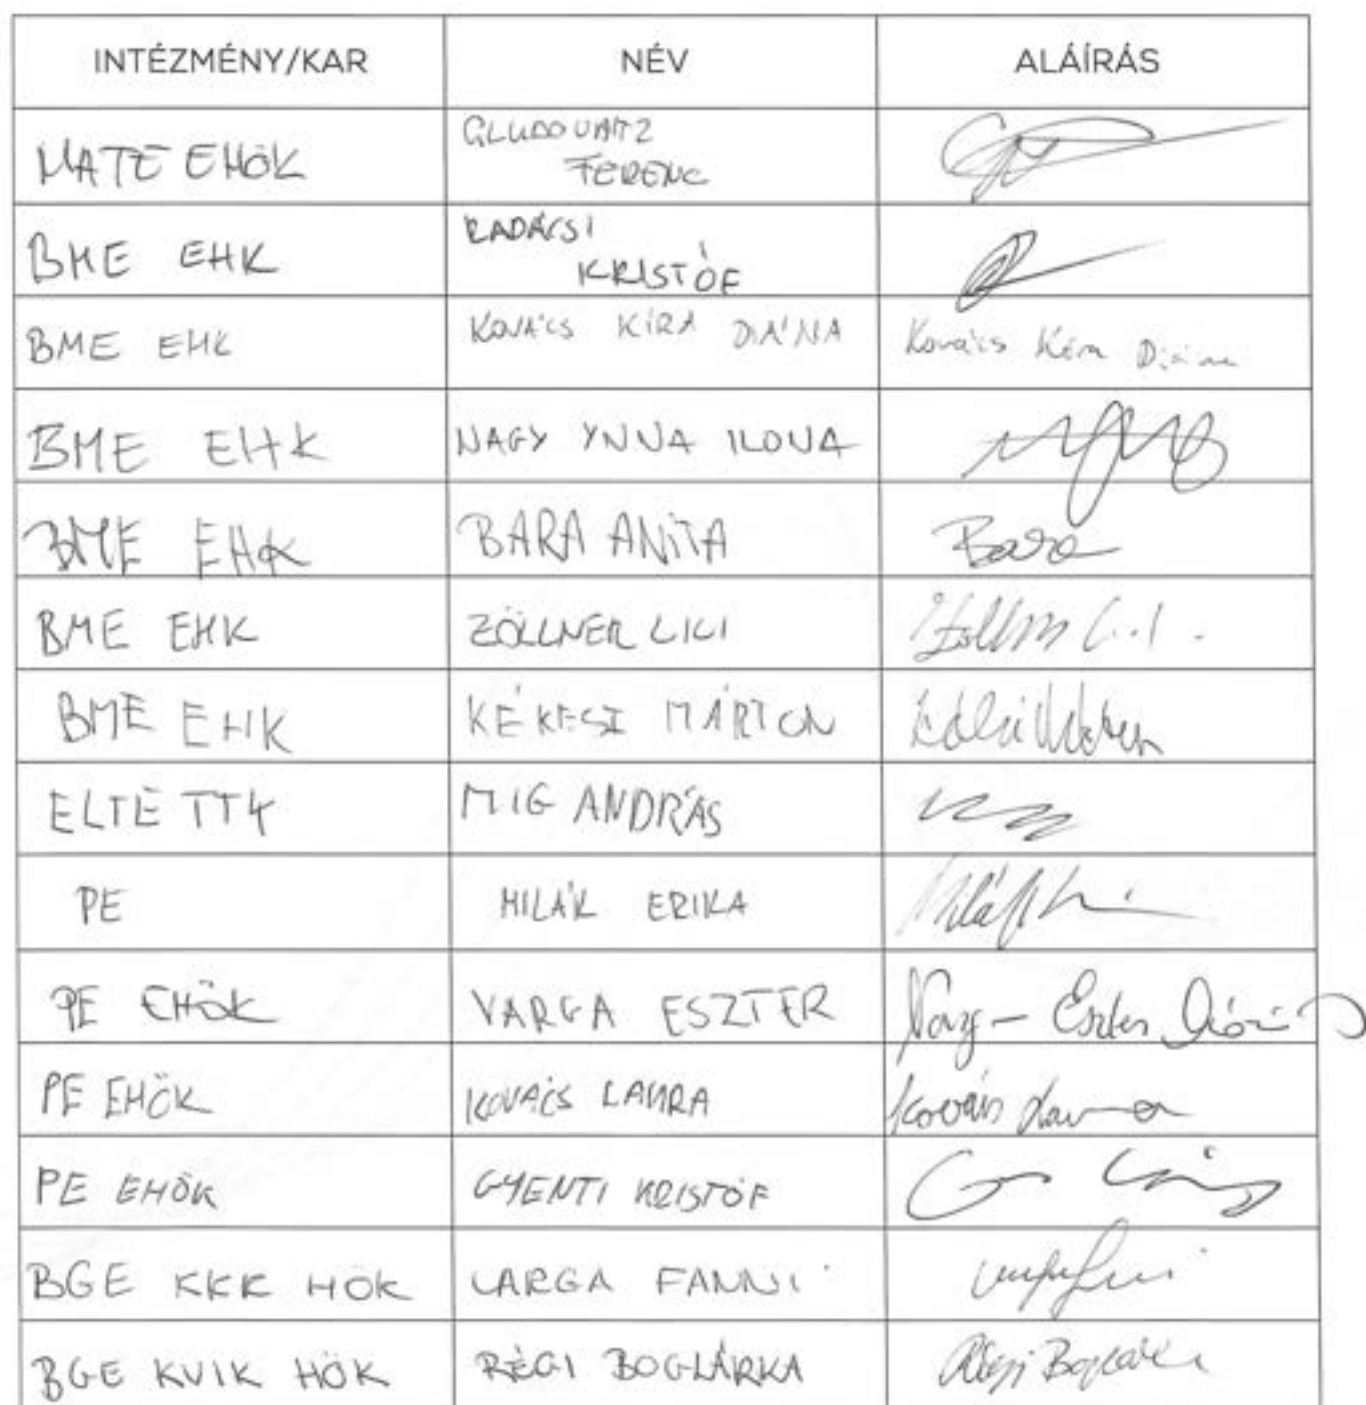 INTÉZMÉNY/KAR NÉV ALÁÍRÁS
MATE EHÖK GLUDOVATZ
FERENC
BME EHK RADÁCSI
KRISTÓF
BME EHK KOVÁCS KÍRA DIÁNA Kovács Kíra Diána
BME EHK NAGY YNNA ILONA
BME EHK BARA ANITA Bara
BME EHK ZÖLLNER LILI
BME EHK KÉKESI MÁRTON
ELTE TTK MIG ANDRÁS
PE MILÁK ERIKA
PE EHÖK VARGA ESZTER Eszter
PE EHÖK KOVÁCS LAURA Kovács Laura
PE EHÖK GYENTI KRISTÓF
BGE KKK HÖK VARGA FANNI
BGE KVIK HÖK RÉGI BOGLÁRKA Régi Boglárka